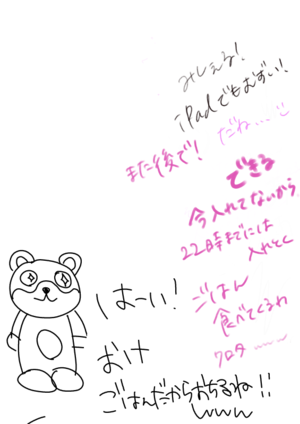 みしぇる!
iPadでもむずい!
だね…
また後で!
できる
今入れてないから
22時までには
入れとく
はーい!
ごはん
食べてくるわ
おけ
クロタ www
ごはんだからおちるね!!
www